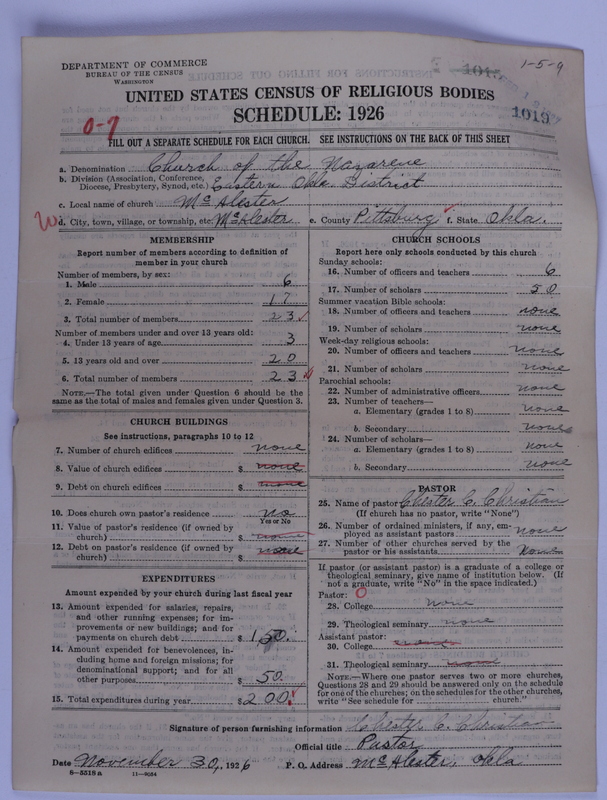 DEPARTMENT OF COMMERCE
BUREAU OF THE CENSUS
WASHINGTON
1-5-9
UNITED STATES CENSUS OF RELIGIOUS BODIES
SCHEDULE: 1926
1019
0-7
FILL OUT A SEPARATE SCHEDULE FOR EACH CHURCH. SEE INSTRUCTIONS ON THE BACK OF THIS SHEET
a. Denomination Church of the Nazarene
b. Division (Association, Conference, Diocese, Presbytery, Synod, etc.) Eastern Okla District
c. Local name of church McAlester
d. City, town, village, or township, etc. McAlester e. County Pittsburg f. State Okla.
MEMBERSHIP
Report number of members according to definition of
member in your church
Number of members, by sex:
1. Male 6
2. Female 17
3. Total number of members 23
Number of members under and over 13 years old:
4. Under 13 years of age 3
5. 13 years old and over 20
6. Total number of members 23
NOTE.—The total given under Question 6 should be
same as the total of males and females given under Question 3.
CHURCH BUILDINGS
See instructions, paragraphs 10 to 12
7. Number of church edifices none
8. Value of church edifices $ none
9. Debt on church edifices $ none
10. Does church own pastor's residence no
Yes or No
11. Value of pastor's residence (if owned by
church) $ none
12. Debt on pastor's residence (if owned by
church) $ none
EXPENDITURES
Amount expended by your church during last fiscal year
13. Amount expended for salaries, repairs,
and other running expenses; for im-
provements or new buildings; and for
payments on church debt $ 150.
14. Amount expended for benevolences, in-
cluding home and foreign missions; for
denominational support; and for all
other purposes $ 50.
15. Total expenditures during year $ 200.
CHURCH SCHOOLS
Report here only schools conducted by this church
Sunday schools:
16. Number of officers and teachers 6
17. Number of scholars 50
Summer vacation Bible schools:
18. Number of officers and teachers none
19. Number of scholars none
Week-day religious schools:
20. Number of officers and teachers none
21. Number of scholars none
Parochial schools:
22. Number of administrative officers none
23. Number of teachers—
a. Elementary (grades 1 to 8) none
b. Secondary none
24. Number of scholars—
a. Elementary (grades 1 to 8) none
b. Secondary none
PASTOR
25. Name of pastor Chester C. Christian
(If church has no pastor, write "None")
26. Number of ordained ministers, if any, em-
ployed as assistant pastors none
27. Number of other churches served by the
pastor or his assistants none
If pastor (or assistant pastor) is a graduate of a college or
theological seminary, give name of institution below. (If
not a graduate, write "No" in the space indicated.)
Pastor: 0
28. College none
29. Theological seminary none
Assistant pastor:
30. College none
31. Theological seminary none
NOTE.—Where one pastor serves two or more churches,
Questions 28 and 29 should be answered only on the schedule
for one of the churches; on the schedules for the other churches,
write "See schedule for church."
Signature of person furnishing information Chester C. Christian
Official title Pastor
Date November 30, 1926 P. O. Address McAlester, Okla
8—5518 a 11—9034